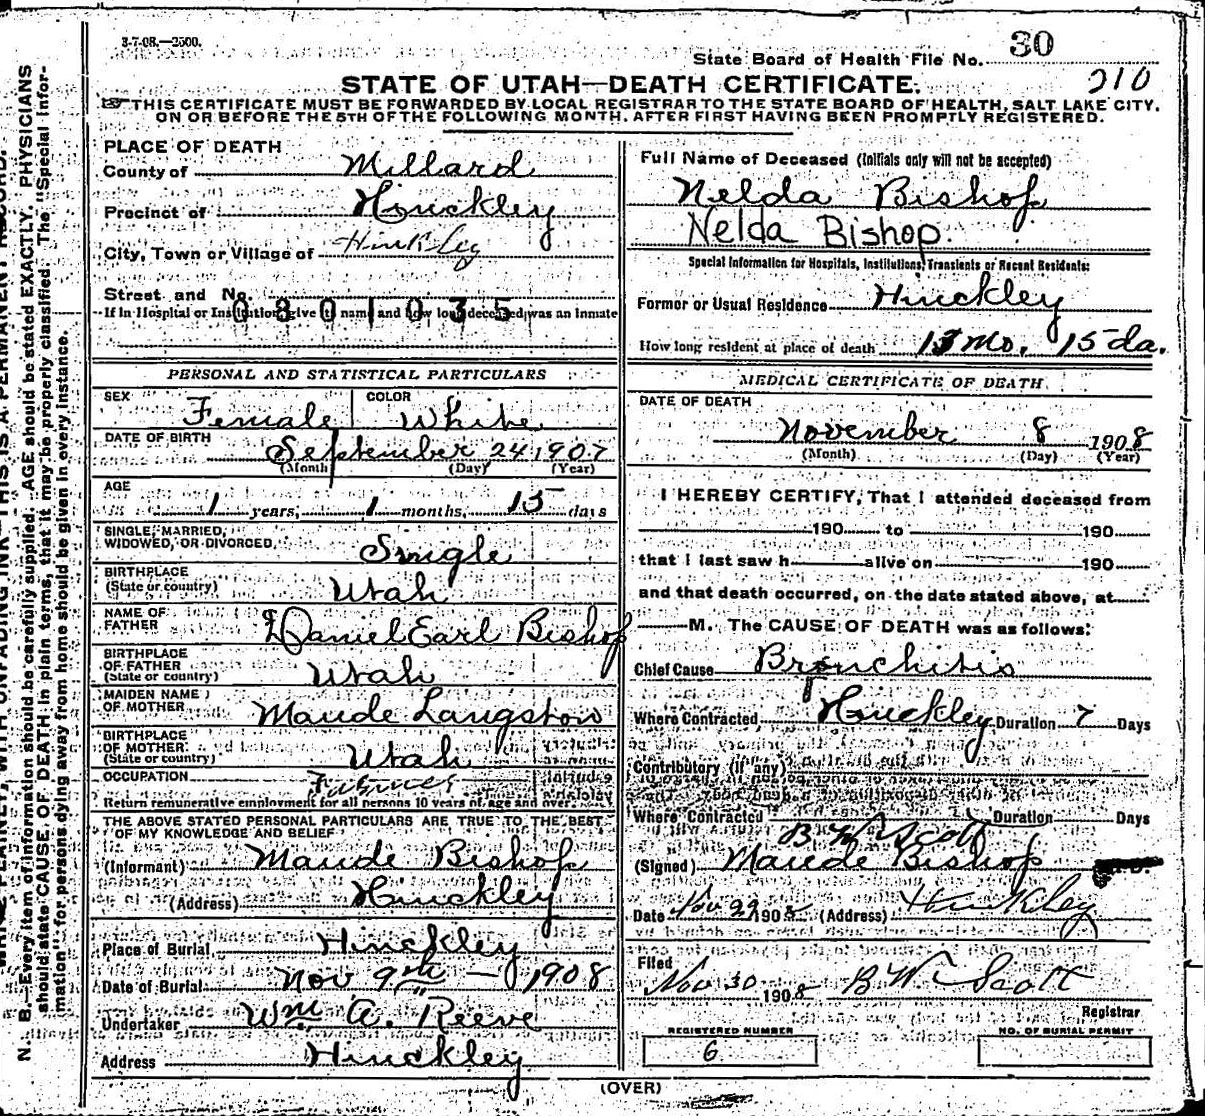 3-7-08.—2500.
State Board of Health File No. 30
210
STATE OF UTAH—DEATH CERTIFICATE.
THIS CERTIFICATE MUST BE FORWARDED BY LOCAL REGISTRAR TO THE STATE BOARD OF HEALTH, SALT LAKE CITY,
ON OR BEFORE THE 5TH OF THE FOLLOWING MONTH, AFTER FIRST HAVING BEEN PROMPTLY REGISTERED.
PLACE OF DEATH
County of Millard
Precinct of Hinckley
City, Town or Village of Hinkley
Street and No.
0801035
If in Hospital or Institution, give its name and how long deceased was an inmate
PERSONAL AND STATISTICAL PARTICULARS
SEX Female COLOR White
DATE OF BIRTH September 24 1907
(Month) (Day) (Year)
AGE 1 years, 1 months, 15 days
SINGLE, MARRIED,
WIDOWED, OR DIVORCED, Single
BIRTHPLACE
(State or country) Utah
NAME OF
FATHER Daniel Earl Bishop
BIRTHPLACE
OF FATHER
(State or country) Utah
MAIDEN NAME
OF MOTHER Maude Langston
BIRTHPLACE
OF MOTHER
(State or country) Utah
OCCUPATION
Return remunerative employment for all persons 10 years of age and over.
THE ABOVE STATED PERSONAL PARTICULARS ARE TRUE TO THE BEST
OF MY KNOWLEDGE AND BELIEF
(Informant) Maude Bishop
(Address) Hinckley
Place of Burial Hinckley
Date of Burial Nov 9th — 1908
Undertaker Wm A. Reeve
Address Hinckley
Full Name of Deceased (Initials only will not be accepted)
Nelda Bishop
Nelda Bishop.
Special Information for Hospitals, Institutions, Transients or Recent Residents:
Former or Usual Residence Hinckley
How long resident at place of death 13 Mo. 15 da.
MEDICAL CERTIFICATE OF DEATH
DATE OF DEATH
November 8 1908
(Month) (Day) (Year)
I HEREBY CERTIFY, That I attended deceased from
190 to 190
that I last saw h alive on 190
and that death occurred, on the date stated above, at
M. The CAUSE OF DEATH was as follows:
Chief Cause Bronchitis
Where Contracted Hinckley Duration 7 Days
Contributory (if any)
Where Contracted Duration Days
B W Scott
(Signed) Maude Bishop
Date Nov 29 1908 (Address) Hinkley
Filed
Nov 30 1908 B W Scott
Registrar
REGISTERED NUMBER
6
NO. OF BURIAL PERMIT
(OVER)
N. B.—Every item of information should be carefully supplied. AGE should be stated EXACTLY. PHYSICIANS
should state CAUSE OF DEATH in plain terms, that it may be properly classified. The "Special Infor-
mation" for persons dying away from home should be given in every instance.